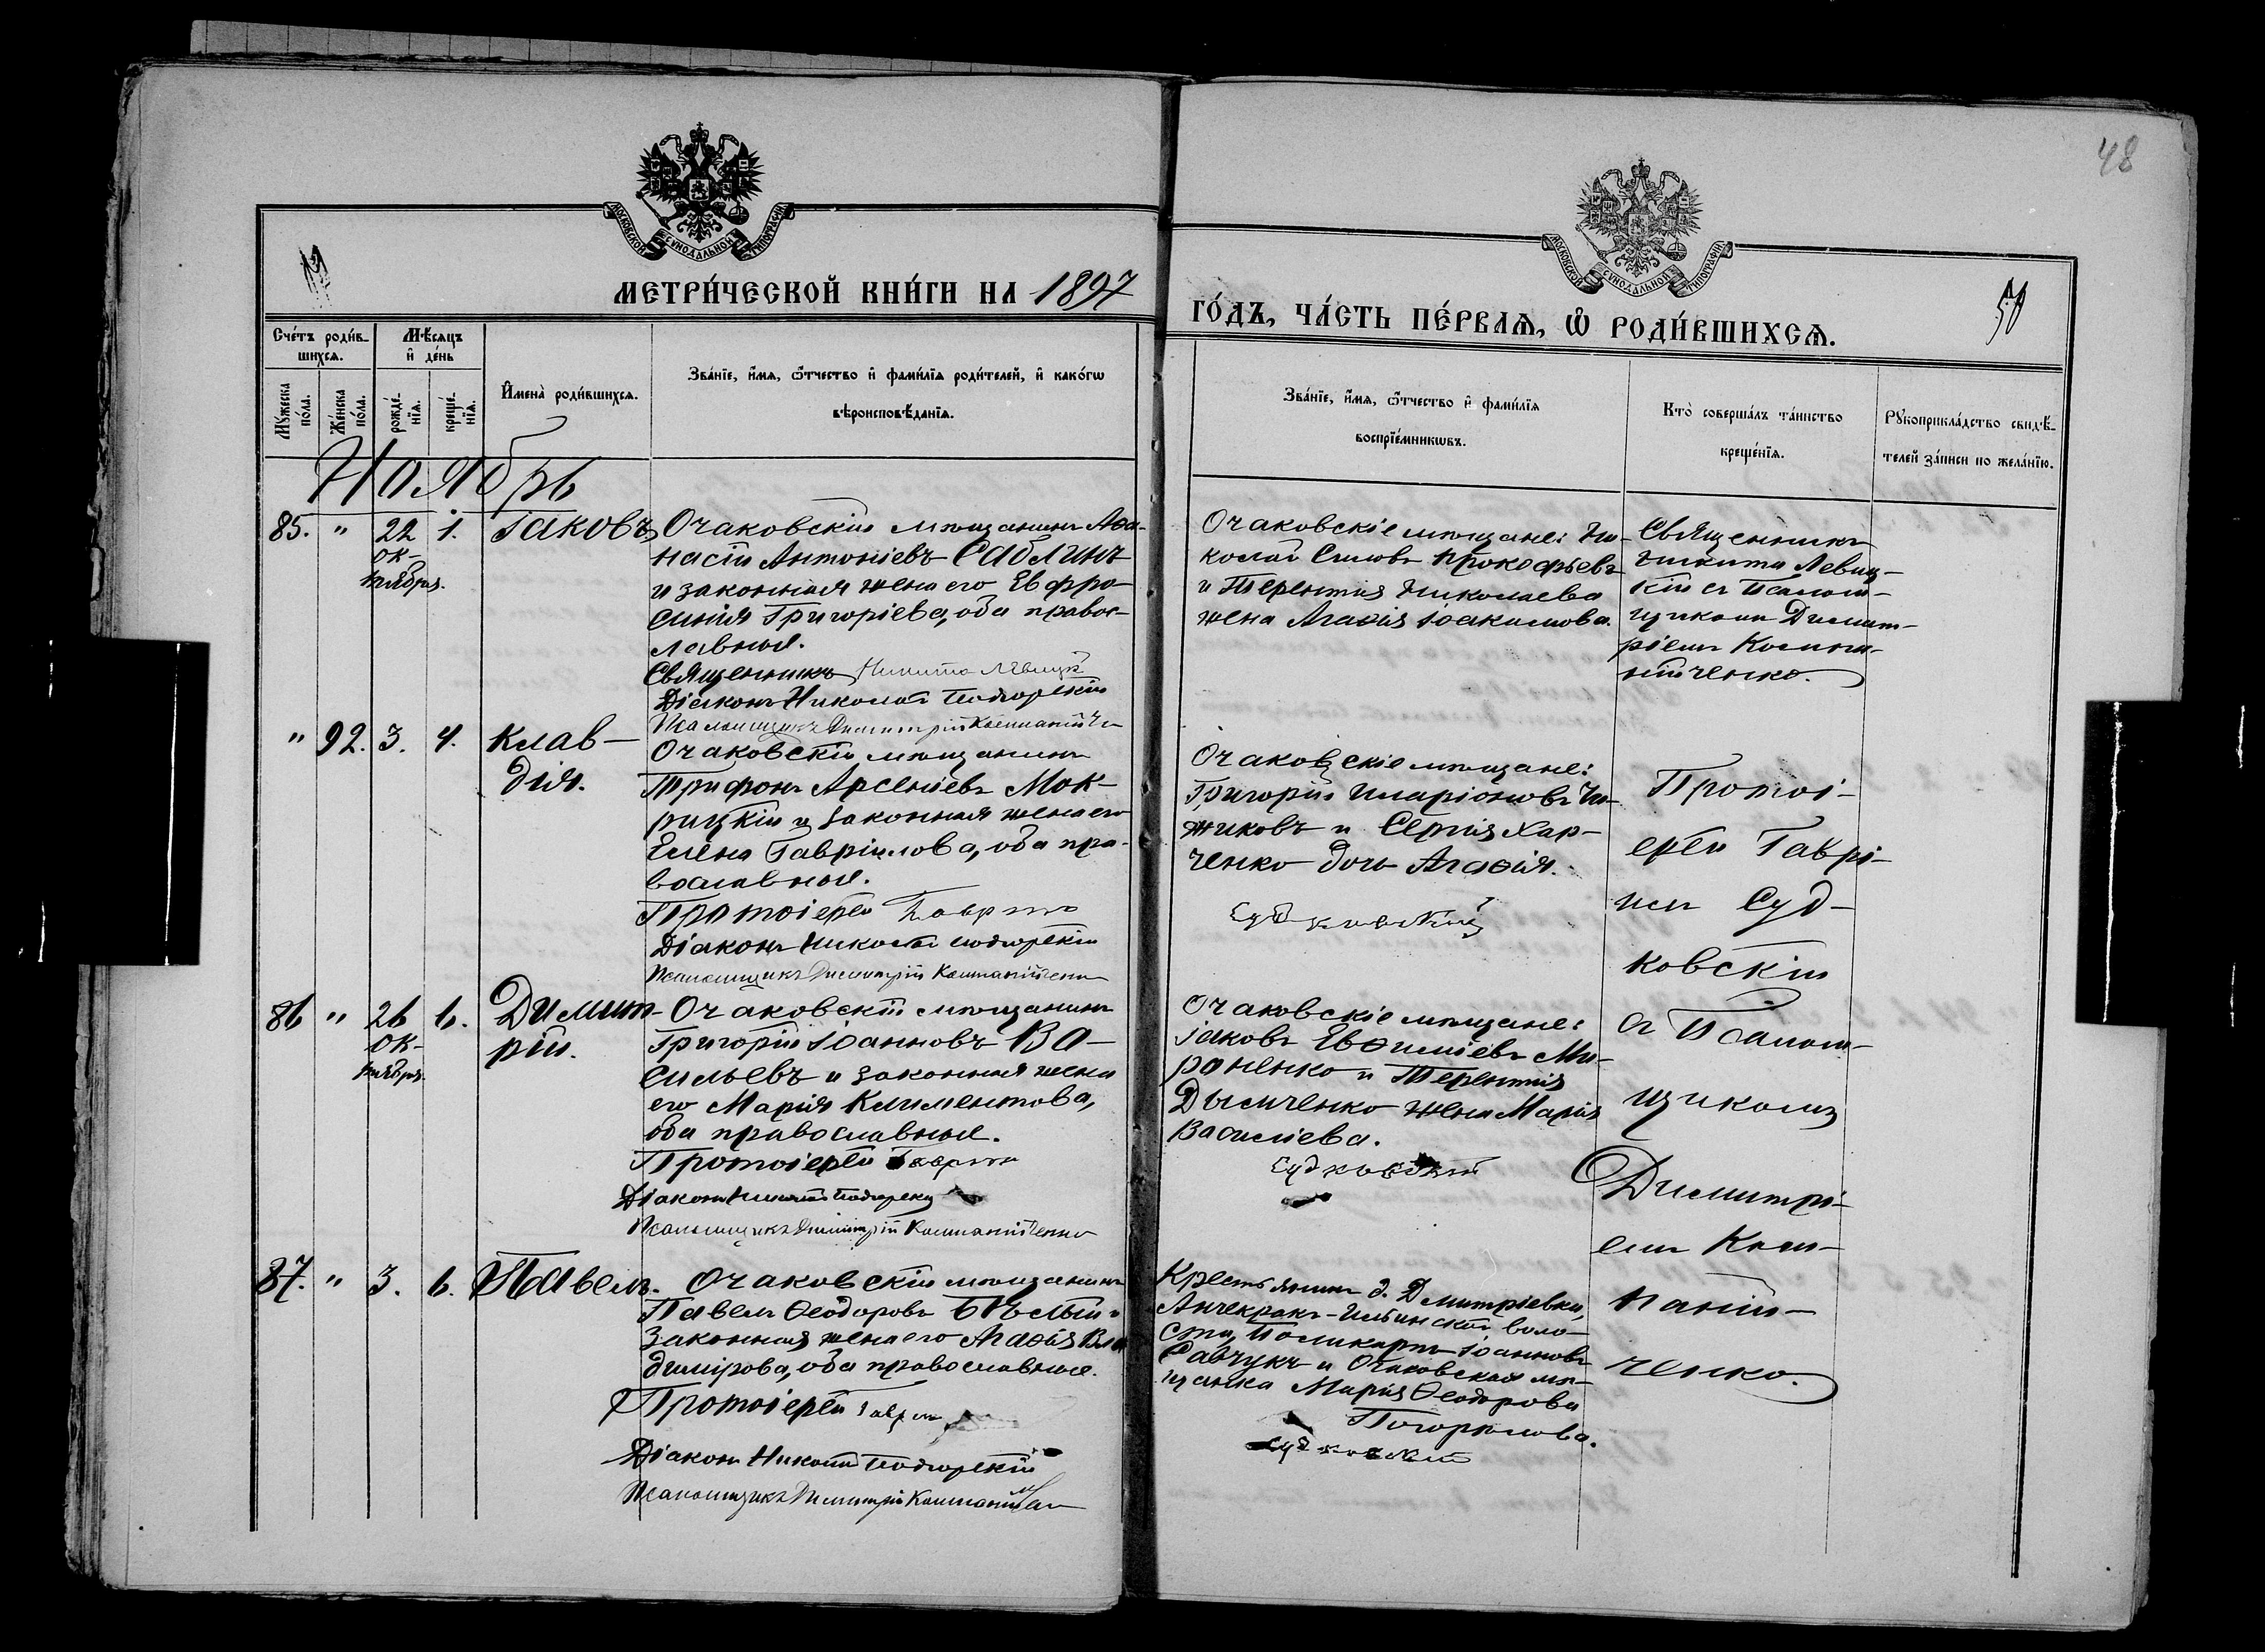 48
МОСКОВСКОЙ СѴНОДАЛЬНОЙ ТИПОГРАФІИ
МОСКОВСКОЙ СѴНОДАЛЬНОЙ ТИПОГРАФІИ
МЕТРИ́ЧЕСКОЙ КНИ́ГИ НА 1897
ГО́ДЪ, ЧА́СТЬ ПЕ́РВАѦ, Ѽ РОДИ́ВШИХСѦ.
50
Сче́тъ роди́в-
шихсѧ.
Мѣ́сѧцъ
и҆ де́нь
Мꙋ́жеска по́ла.
Же́нска по́ла.
рожде́-
нїѧ.
креще́-
нїѧ.
И҆мена̀ роди́вшихсѧ.
Зва́нїе, и҆́мѧ, ѻ҆́тчество и҆ фами́лїѧ роди́телей, и҆ како́гѡ
вѣроисповѣ́данїѧ.
Зва́нїе, и҆́мѧ, ѻ҆́тчество и҆ фами́лїѧ
воспрїе́мникѡвъ.
Кто̀ соверша́лъ та́инство
креще́нїѧ.
Рꙋкоприкла́дство свидѣ́-
телей за́писи по жела́нїю.
Ноябрь
85. " 22 1. Іаковъ
ок-
тября.
Очаковскій мѣщанинъ Аѳа-
насій Антоніевъ Саблинъ
и законная жена его Евфро-
синія Григоріева, оба правос-
лавные.
Священникъ Никита Левицкій
Діаконъ Николай Подгорскій
Псаломщикъ Димитрій Компанійче
Очаковскіе мѣщане: Ни-
колай Силовъ Прокофьевъ
и Терентія Николаева
жена Агаѳія Іоакимова.
Священникъ
Никита Левиц-
кій съ Псалом-
щикомъ Димит-
ріемъ Компа-
нійченко.
" 92. 3. 4. Клав-
дія.
Очаковскій мѣщанинъ
Трифонъ Арсеніевъ Мок-
рицкій и законная жена его
Елена Гавріилова, оба пра-
вославные.
Протоіерей Гавріилъ
Діаконъ Николай Подгорскій
Псаломщикъ Димитрій Компанійченко
Очаковскіе мѣщане:
Григорій Иларіоновъ Чи-
жиковъ и Сергія Хар-
ченко дочь Агаѳія.
Судковскій
Протоі-
ерей Гаврі-
илъ Суд-
ковскій
съ Псалом-
щикомъ
Димитрі-
емъ Ком-
паній-
ченко.
86 " 26 6. Димит-
рій.
ок-
тября.
Очаковскій мѣщанинъ
Григорій Іоанновъ Ва-
сильевъ и законная жена
его Марія Климентова,
оба православные.
Протоіерей Гавріилъ
Діаконъ Николай Подгорскій
Псаломщикъ Димитрій Компанійченко
Очаковскіе мѣщане:
Іаковъ Евѳиміевъ Ми-
роненко и Терентія
Дымченко жена Марія
Василіева.
Судковскій
87. " 3. 6. Павелъ.
Очаковскій мѣщанинъ
Павелъ Ѳеодоровъ Бѣлый и
законная жена его Агаѳія Вла
димірова, оба православные.
Протоіерей Гавріилъ
Діаконъ Николай Подгорскій
Псаломщикъ Димитрій Компанійченко
Крестьянинъ д. Дмитріевки,
Анчекракъ-Ильинской воло-
сти, Поликарпъ Іоанновъ
Савчукъ и Очаковская мѣ-
щанка Марія Ѳеодорова
Погорѣлова.
Судковскій